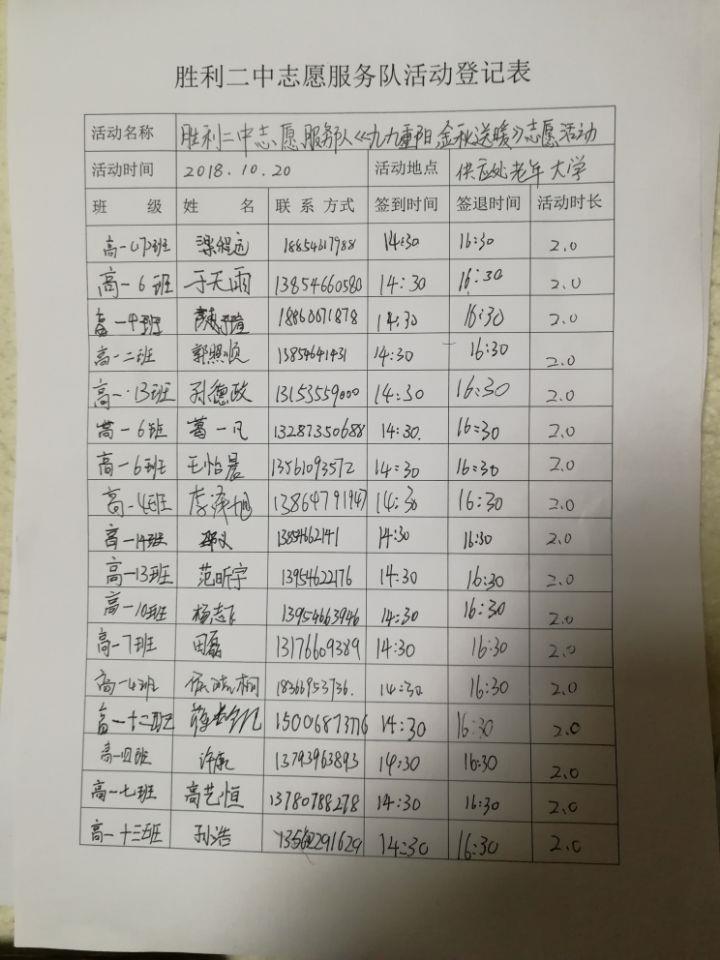 胜利二中志愿服务队活动登记表
活动名称 胜利二中志愿服务队《九九重阳 金秋送暖》志愿活动
活动时间 2018.10.20 活动地点 供应处老年大学
班 级 姓 名 联系方式 签到时间 签退时间 活动时长
高一(7)班 梁程远 18854617988 14:30 16:30 2.0
高一6班 于天雨 13854660580 14:30 16:30 2.0
高一 班 18860071878 14:30 16:30 2.0
高一二班 郭照顺 13854641431 14:30 16:30 2.0
高一·13班 孙德政 13153559000 14:30 16:30 2.0
高一6班 葛一凡 13287350688 14:30. 16:30 2.0
高一6班 王怡晨 13561093572 14:30 16:30 2.0
高一4班 李泽旭 13864791947 14:30 16:30 2.0
高一14班 14:30 16:30 2.0
高一13班 范昕宇 13954622176 14:30 16:30 2.0
高一10班 杨志飞 13954663946 14:30 16:30 2.0
高一7班 田磊 13176609389 14:30 16:30 2.0
高一4班 18366953736. 14:30 16:30 2.0
高一十二班 15006873776 14:30 16:30 2.0
高一四班 13793963893 14:30 16:30 2.0
高一七班 高艺恒 13780788278 14:30 16:30 2.0
高一十三班 孙浩 14:30 16:30 2.0